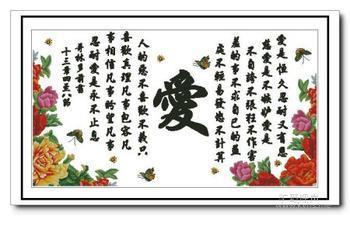 愛是恒久忍耐又有恩
慈愛是不嫉妒愛是
不自誇不張狂不作害
羞的事不求自己的益
處不輕易發怒不計算
愛
人的惡不喜歡不義只
喜歡真理凡事包容凡
事相信凡事盼望凡事
忍耐愛是永不止息
哥林多前書
十三章四至八節